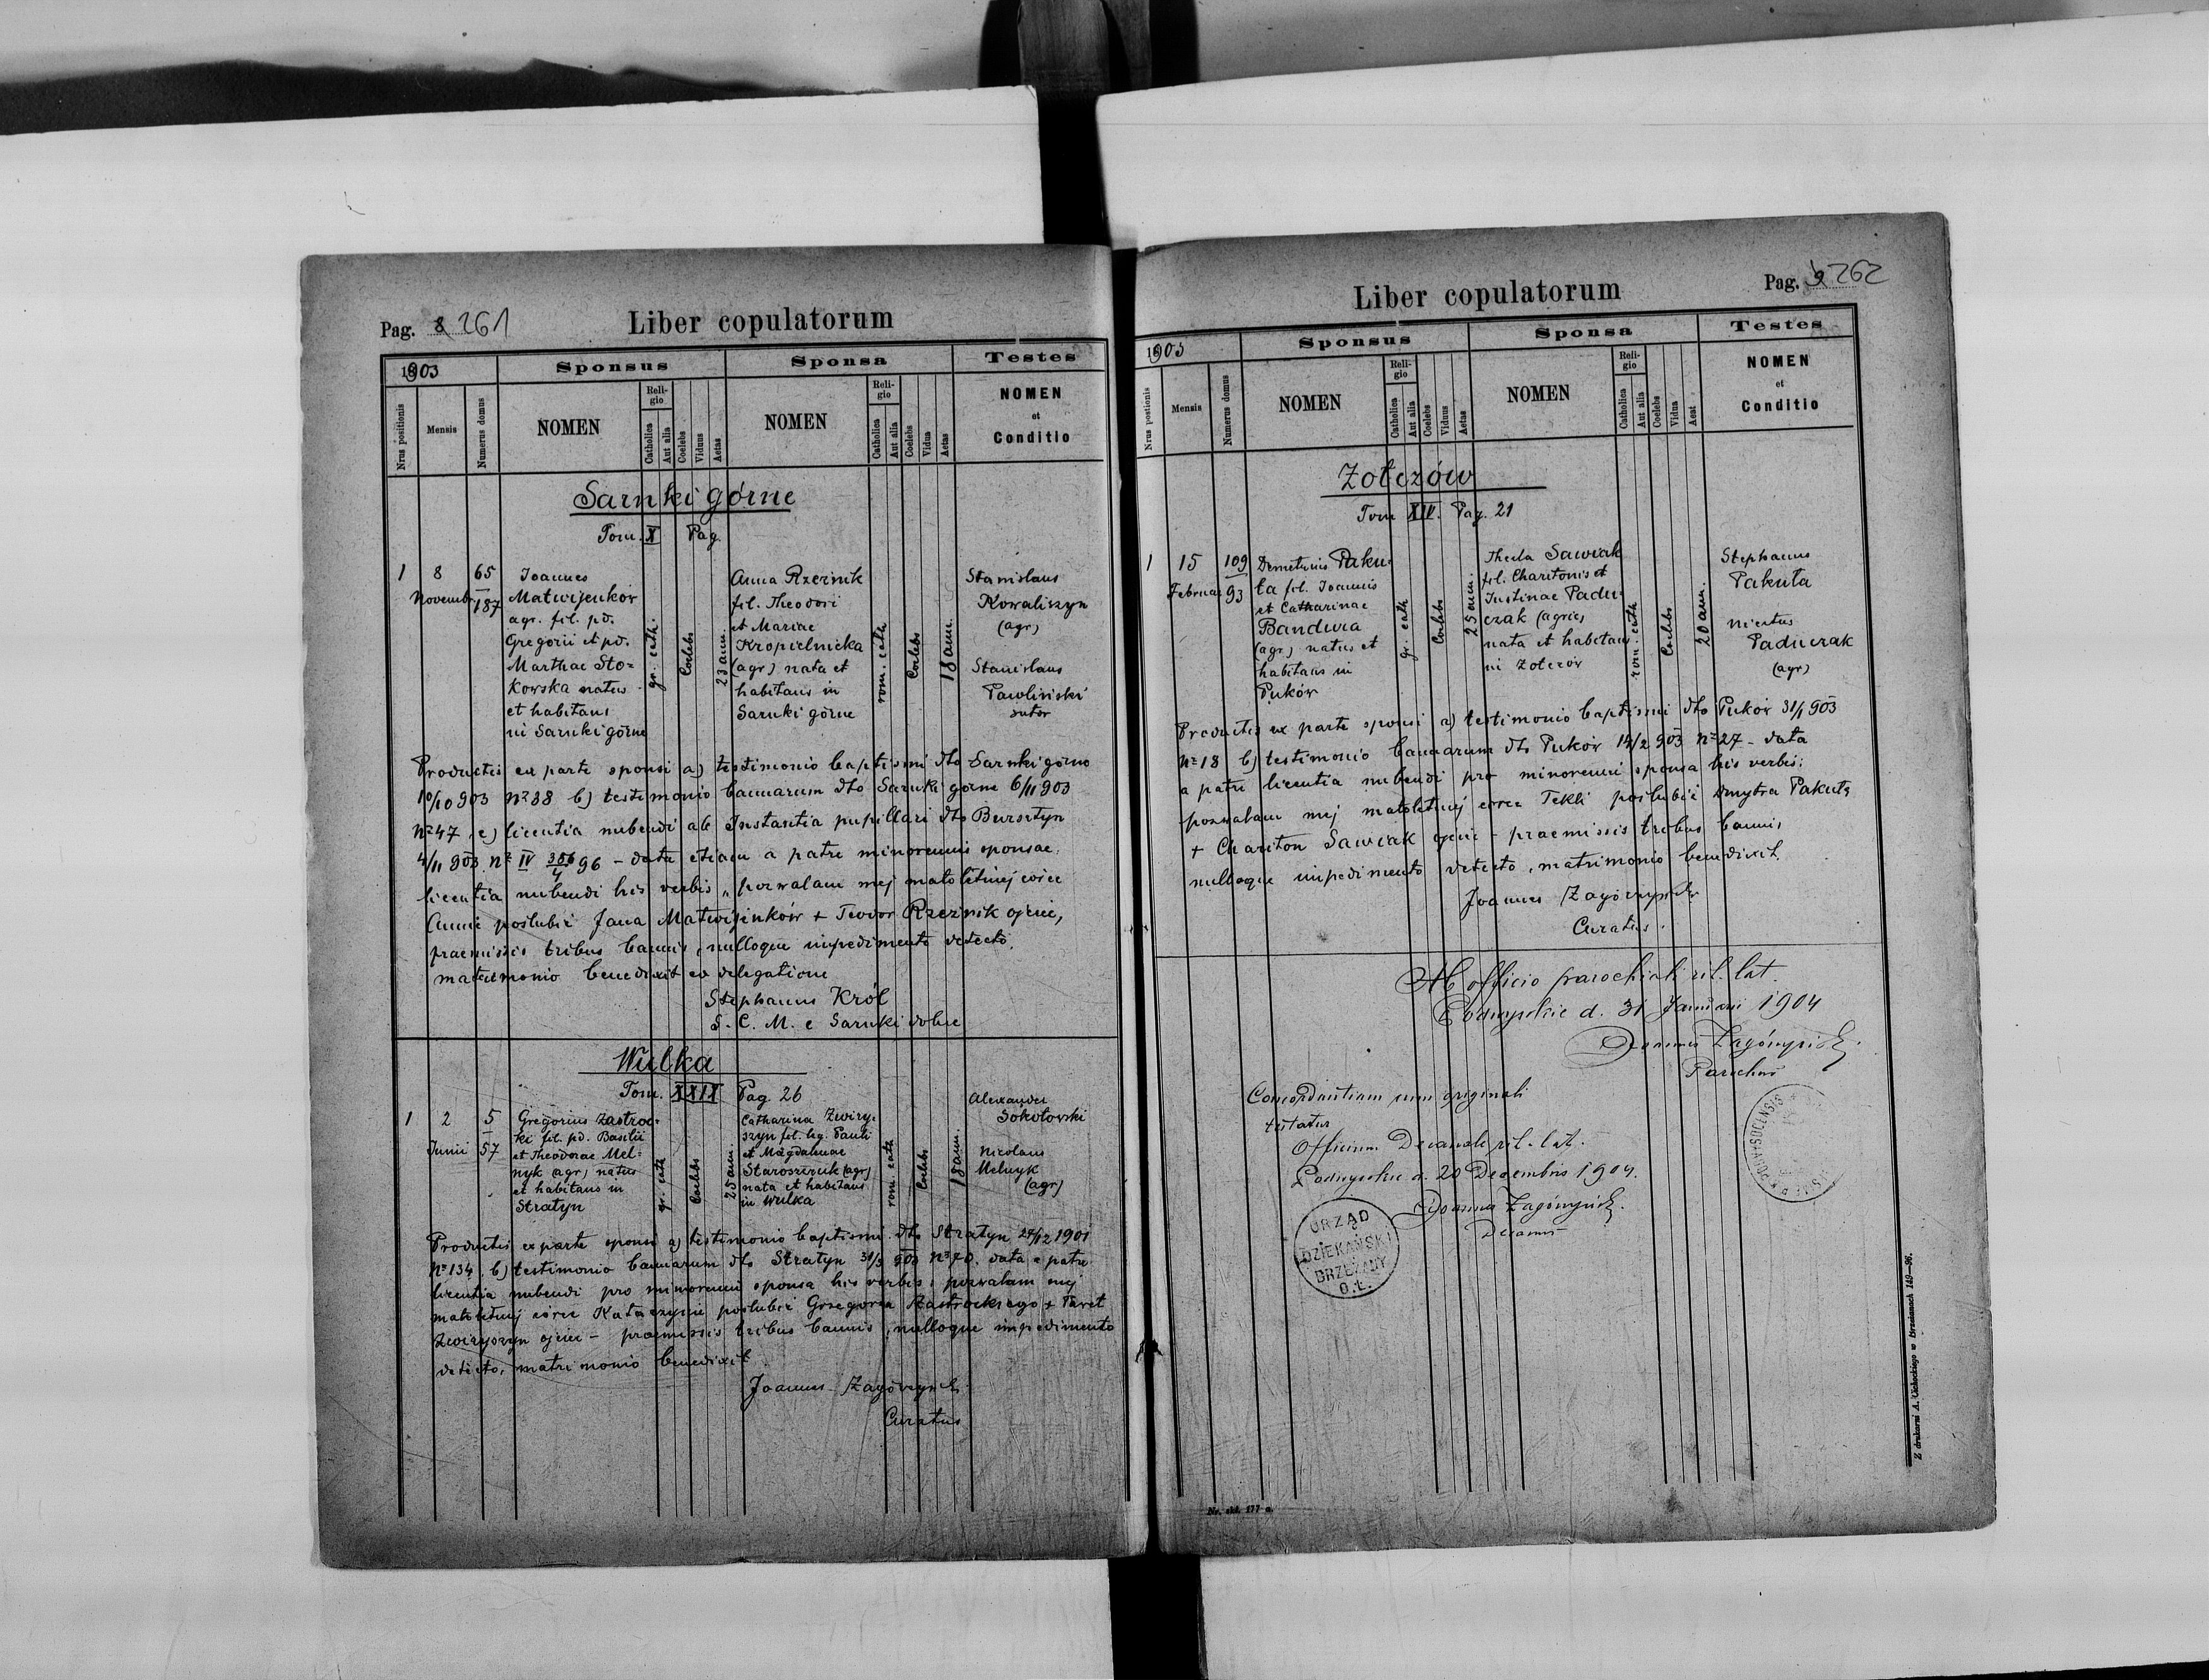 Pag. 8 261
Liber copulatorum
1903
Sponsus
Sponsa
Testes
Nrus positionis
Mensis
Numerus domus
NOMEN
Religio
Catholica
Aut alia
Coelebs
Viduus
Aetas
NOMEN
Religio
Catholica
Aut alia
Coelebs
Vidua
Aetas
NOMEN
et
Conditio
Sarnki górne
Tom. X Pag
1
8
Novembr
65
187
Joannes
Matwijenków
agr. fil. pd.
Gregorii et pd.
Marthae Sto=
kowska natus
et habitans
in Sarnki górne
gr. cath.
Coelebs
23 ann.
Anna Rzeźnik
fil. Theodori
et Mariae
Kropielnicka
(agr) nata et
habitans in
Sarnki górne
rom. cath
Coelebs
18 ann.
Stanislaus
Kowaliszyn
(agr)
Stanislaus
Pawliński
sutor
Productis ex parte sponsi a) testimonio baptismi dto Sarnki górne
10/10 903 No 38 b) testimonio bannorum dto Sarnki górne 6/11 903
No 47, c) licentia nubendi ab Instantia pupillari dto Bursztyn
4/11 903. No IV 96 – data etiam a patre minorennis sponsae
licentia nubendi his verbis „ pozwalam mej małoletniej córce
Annie poślubić Jana Matwijenków + Teodor Rzeźnik ojciec,
praemissis tribus bannis, nulloque impedimento detecto,
matrimonio benedixit ex delegatione
Stephanus Król
S. C. M. e Sarnki dolne
Wulka
Tom. XXIX Pag 26
1
2
Junii
5
57
Gregorius Zastroc=
ki fil. pd. Basilii
et Theodorae Mel=
nyk (agr) natus
et habitans in
Stratyn
gr. cath
Coelebs
25 ann.
Catharina Zwiry=
szyn fil. leg. Pauli
et Magdalenae
Staroszczuk (agr)
nata et habitans
in Wulka
rom. cath
Coelebs
18 ann.
Alexander
Sokołowski
Nicolaus
Melnyk
(agr)
Productis ex parte sponsi a) testimonio baptismi dto Stratyn 24/12 1901
No 134, b) testimonio bannorum dto Stratyn 31/5 903 No 70. data a patre
licentia nubendi pro minorenni sponsa his verbis: pozwalam mej
małoletniej córce Katarzynie poślubić Grzegorza Zastrockiego + Paweł
Zwiryszyn ojciec – praemissis tribus bannis, nulloque impedimento
detecto, matrimonio benedixit
Joannes Zagórzyński
Curatus
Pag. 9 262
Liber copulatorum
1903
Sponsus
Sponsa
Testes
Nrus postionis
Mensis
Numerus domus
NOMEN
Religio
Catholica
Aut alia
Coelebs
Viduus
Aetas
NOMEN
Religio
Catholica
Aut alia
Coelebs
Vidua
Aeat
NOMEN
et
Conditio
Zołczów
Tom XIV. Pag. 21
1
15
Februar
109
93
Demetrius Paku=
ta fil. Joannis
et Catharinae
Bandura
(agr) natus et
habitans in
Puków
gr. cath
Coelebs
25 ann.
Thecla Sawiak
fil. Charitonis et
Justinae Padu=
czak (agric)
nata et habitans
in Zołczów
rom. cath
Coelebs
20 ann.
Stephanus
Pakuta
Paduczak
(agr)
Productis ex parte sponsi a) testimonio baptismi dto Puków 31/1 903
No 18 b) testimonio bannorum dto Puków 14/2 903 No 27 – data
a patre licentia nubendi pro minorenni sponsa his verbis:
pozwalam mej małoletniej córce Tekli poślubić Dmytra Pakutę
+ Chariton Sawiak ojciec – praemissis tribus bannis,
nulloque impedimento detecto, matrimonio benedixit.
Joannes Zagórzyński
Curatus.
Ab officio parochiali rit. lat.
Podwysokie d. 31 Januarii 1904
Joannes Zagórzyński
Parochus
Concordantiam cum originali
testatur
Officium Decanale rit. lat.
Podwysokie d. 20 Decembris 1904.
Joannes Zagórzyński
Decanus
URZĄD
DZIEKAŃSKI
BRZEŻANY
O.Ł.
Z drukarni A. Cichockiego w Brzeżanach 149—96.
No. skł. 177 a.